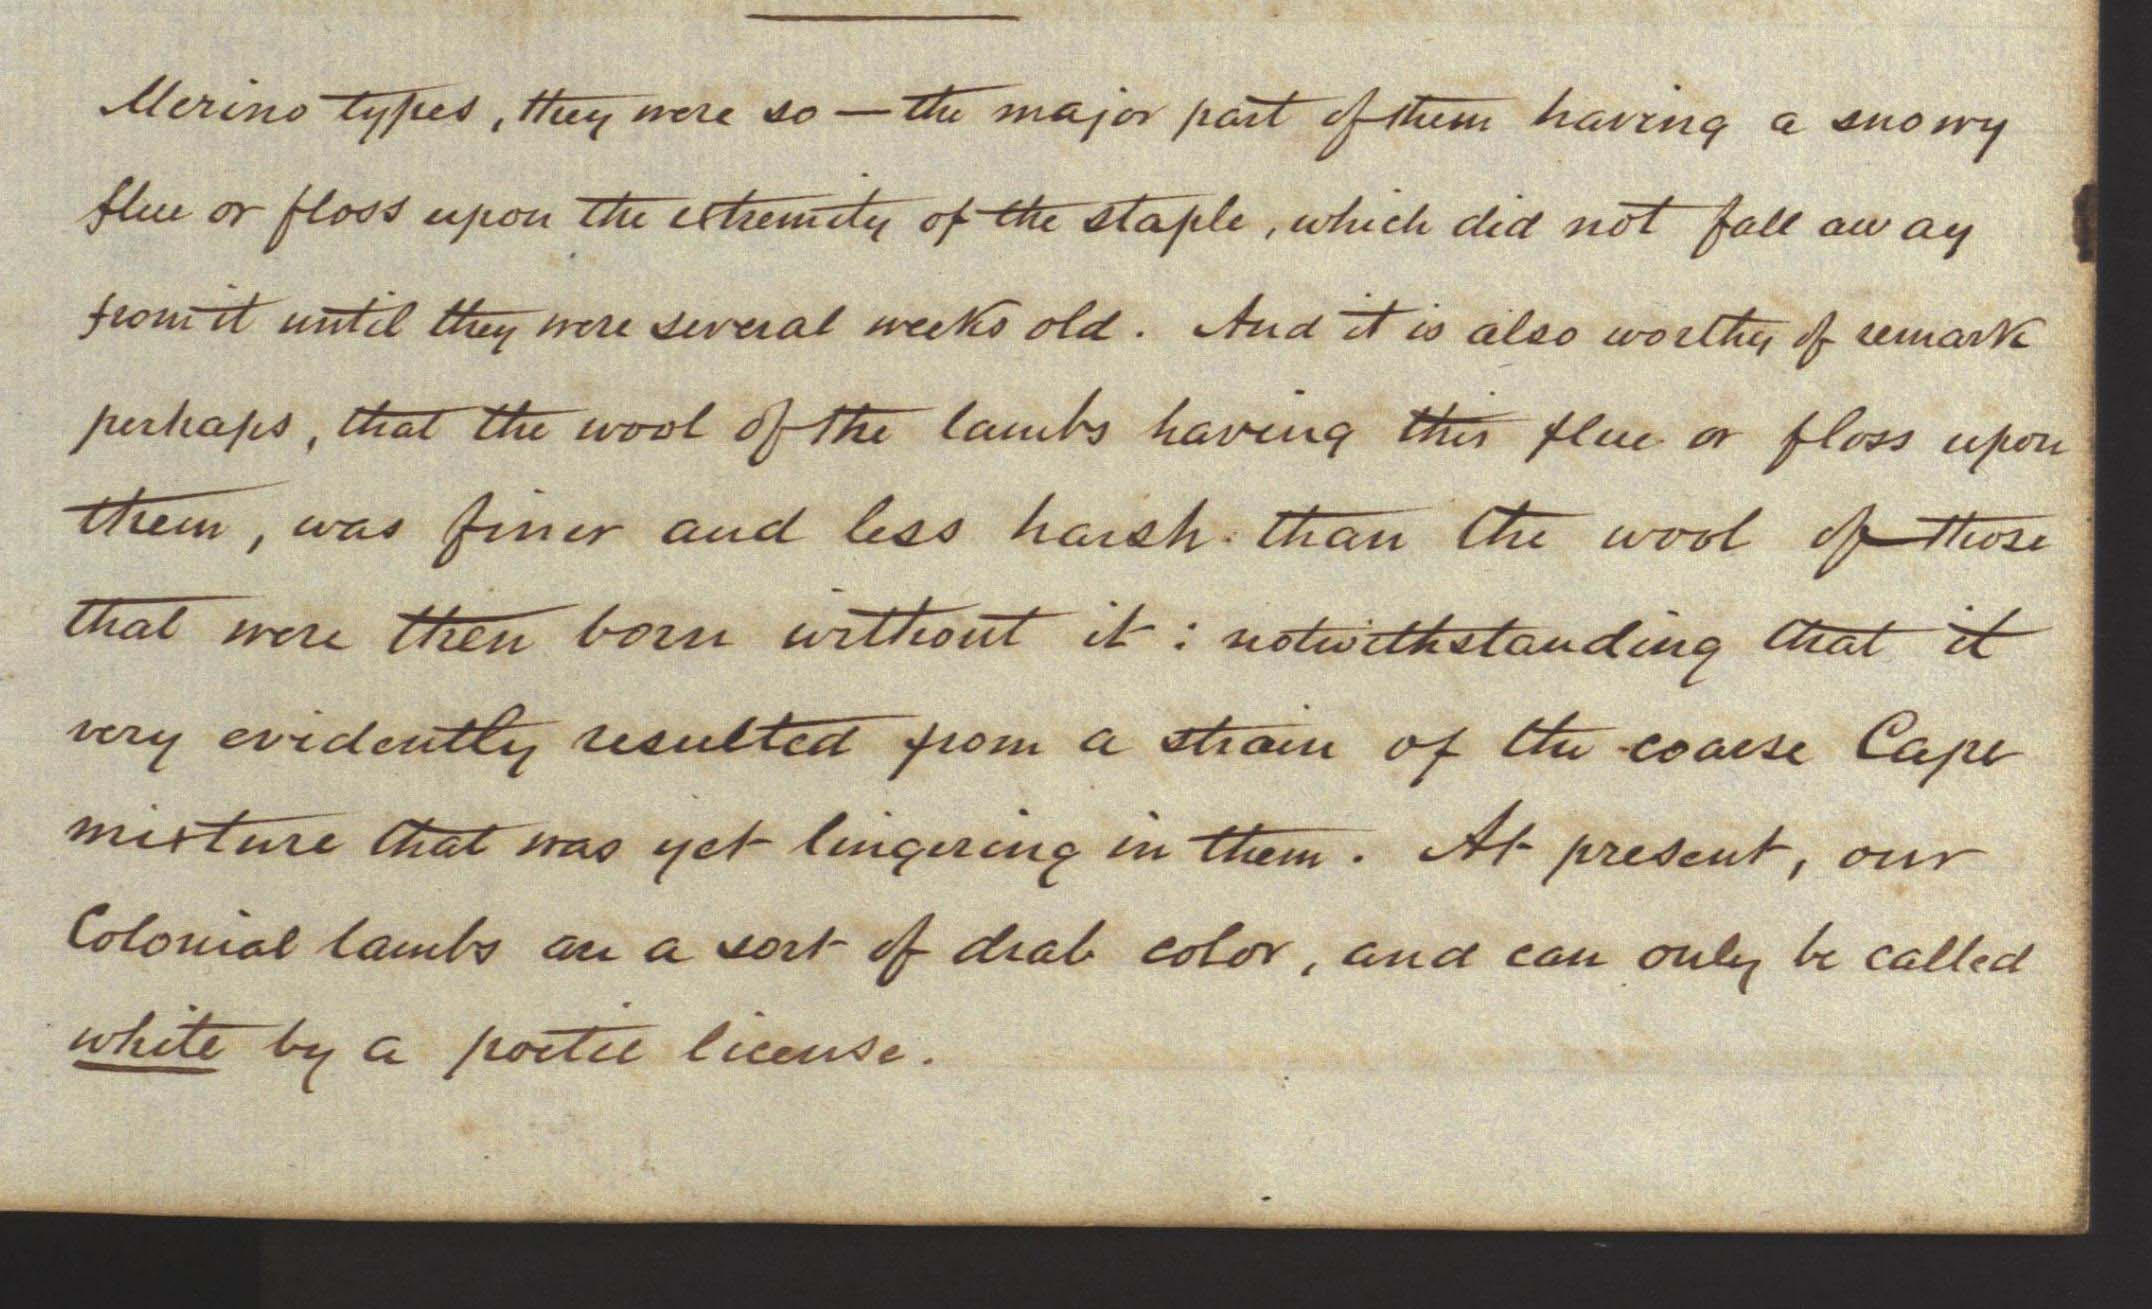 Merino types, they were so — the major part of them having a snowy
flue or floss upon the extremity of the staple, which did not fall away
from it until they were several weeks old. And it is also worthy of remark
perhaps, that the wool of the lambs having this flue or floss upon
them, was finer and less harsh than the wool of those
that were then born without it: notwithstanding that it
very evidently resulted from a strain of the coarse Cape
mixture that was yet lingering in them. At present, our
Colonial lambs are a sort of drab color, and can only be called
white by a poetic license.